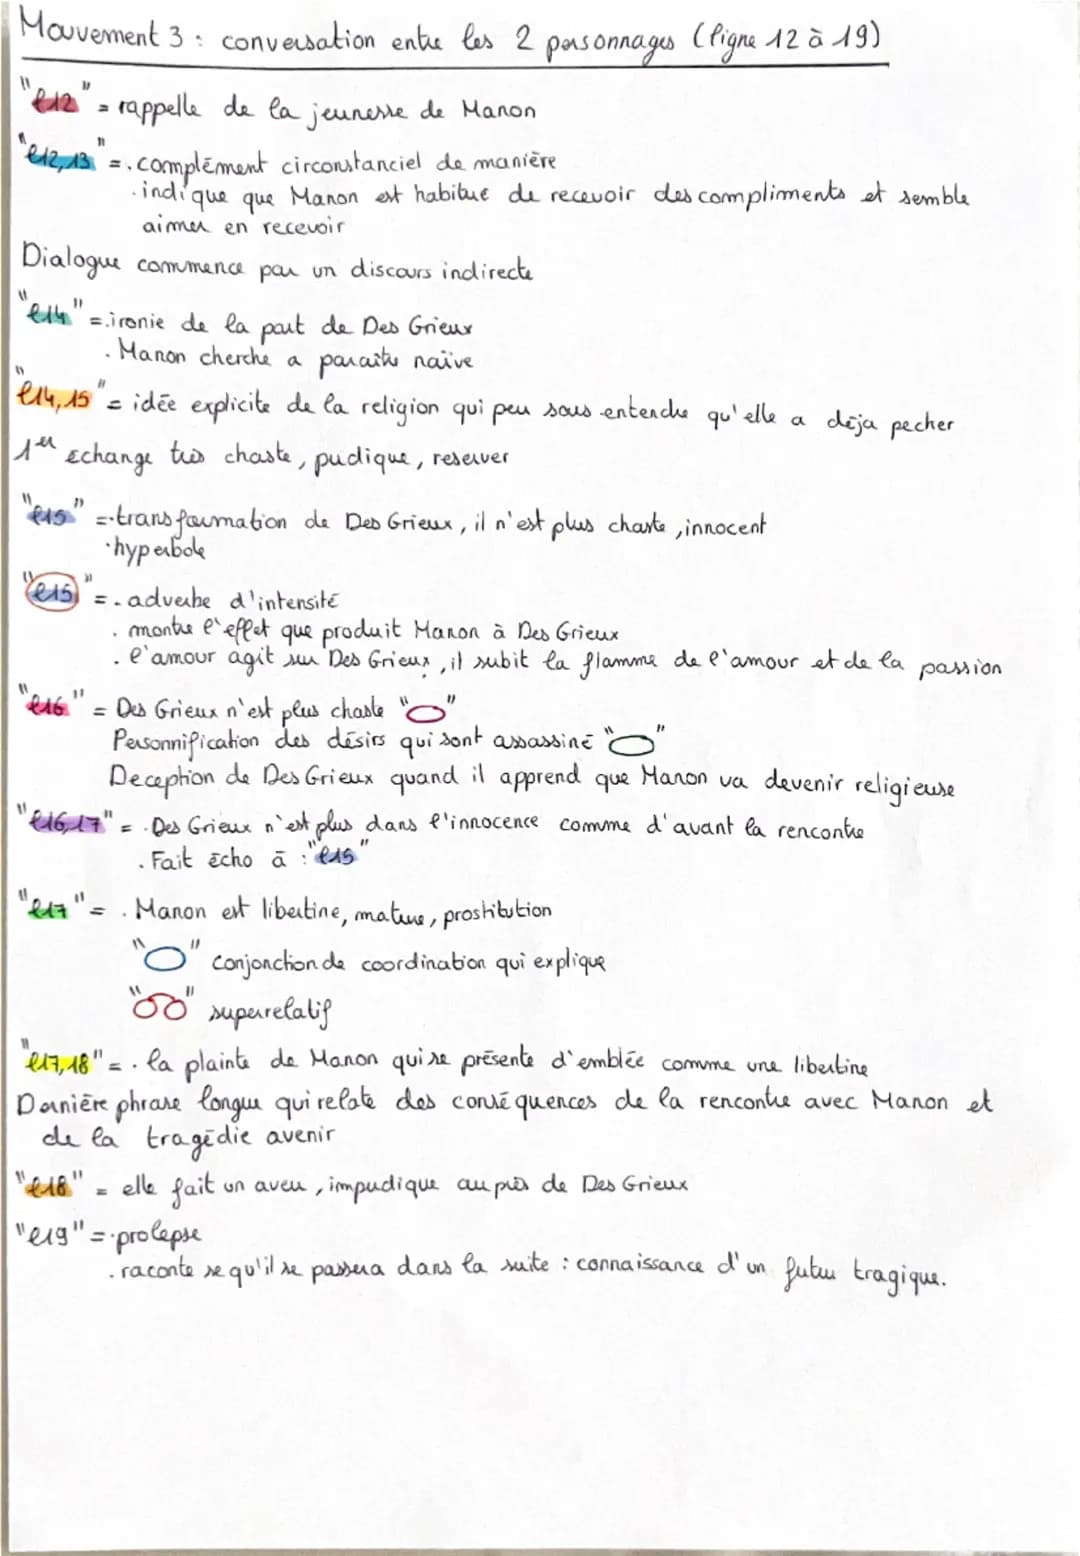 Mouvement 3 : conversation entre les 2 personnages (ligne 12 à 19)
"l12" = rappelle de la jeunesse de Manon
"l12,13" = . complément circonstanciel de manière
. indique que Manon est habitué de recevoir des compliments et semble
aimer en recevoir
Dialogue commence par un discours indirecte
"l14" = . ironie de la part de Des Grieux
. Manon cherche a paraitre naïve
"l14,15" = idée explicite de la religion qui peu sous entendre qu'elle a déja pecher
1er échange très chaste, pudique, reserver
"l15" = . transformation de Des Grieux, il n'est plus chaste, innocent
. hyperbole
"l15" = . adverbe d'intensité
. montre l'effet que produit Manon à Des Grieux
. l'amour agit sur Des Grieux, il subit la flamme de l'amour et de la passion
"l16" = Des Grieux n'est plus chaste " "
Personnification des désirs qui sont assassiné " "
Deception de Des Grieux quand il apprend que Manon va devenir religieuse
"l16,17" = . Des Grieux n'est plus dans l'innocence comme d'avant la rencontre
. Fait écho à : "l15"
"l17" = . Manon est libertine, mature, prostitution
" " conjonction de coordination qui explique
" " superrelatif
"l17,18" = . la plainte de Manon qui se présente d'emblée comme une libertine
Dernière phrase longue qui relate des conséquences de la rencontre avec Manon et
de la tragédie avenir
"l18" = elle fait un aveu, impudique auprès de Des Grieux
"l19" = . prolepse
. raconte se qu'il se passera dans la suite : connaissance d'un futur tragique.